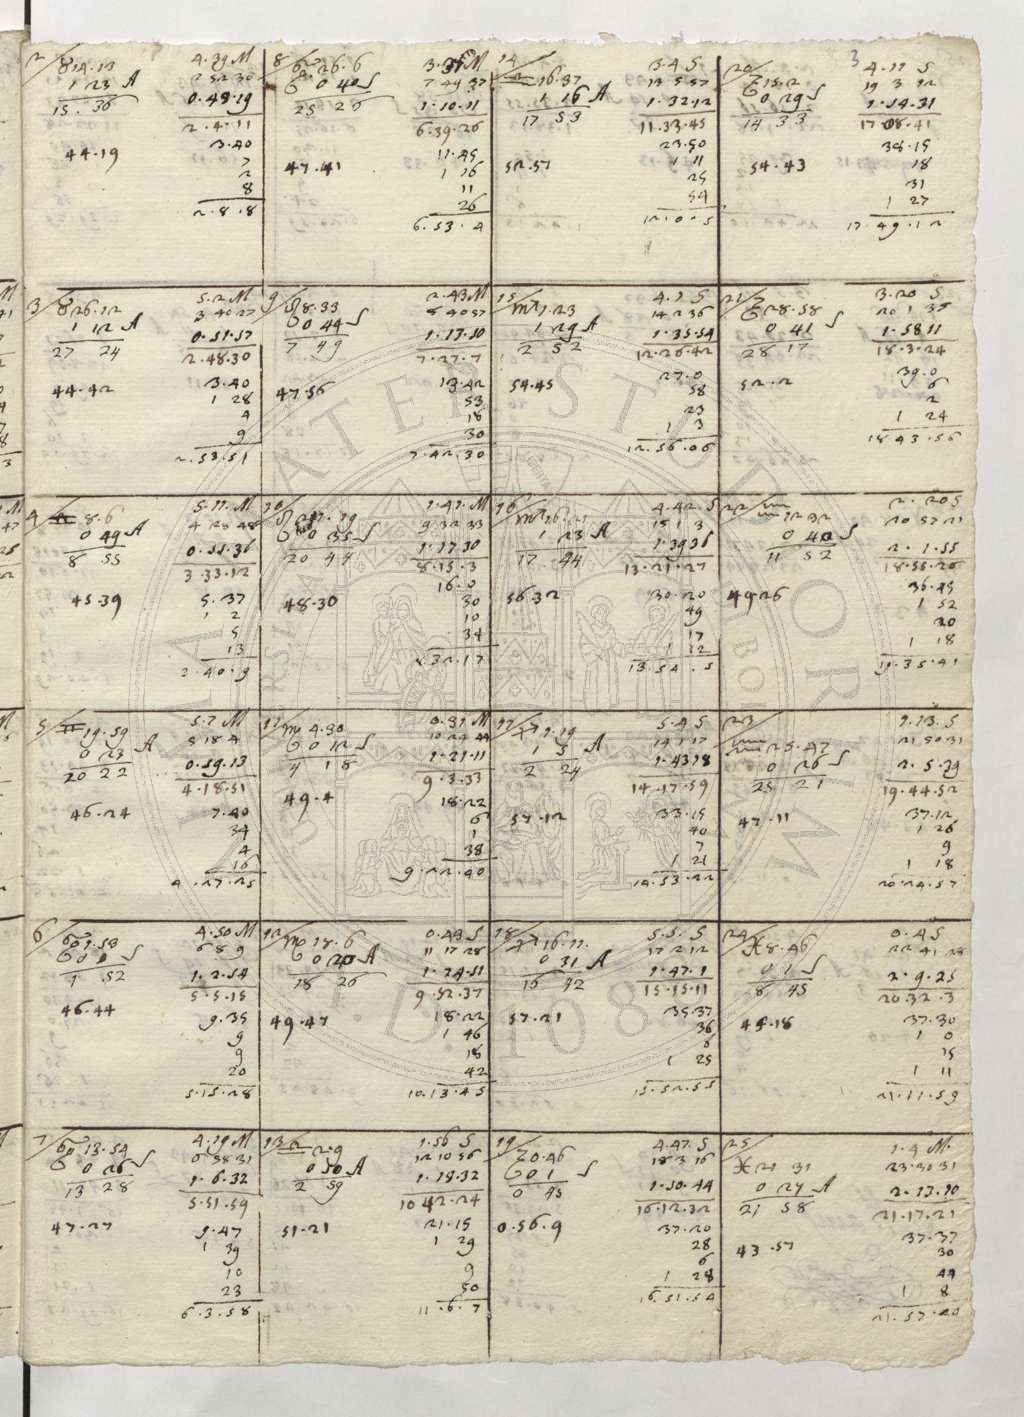 3
2/
♉14.13
1 23 A
15. 36
44.19
4.29 M
2 52 30
0.49.19
2.4.11
3.40
7
2
8
2.8.8
8/
26.6
0 40 S
25 26
47.41
7 49 37
1.10.11
6.39.26
11.45
1 16
11
26
6.53.4
14/
♎16.37
1 16 A
17 53
52.57
3.4 S
13 5 57
1.32.12
11.33.45
23.50
1 11
25
54
12.0.5
20/
0 29 S
14 33
54.43
4.17 S
19 3 12
1.54.31
17.08.41
38.15
18
31
1 27
17.49.12
3/
♉26.12
1 12 A
27 24
44.42
5.2 M
3 40 27
0.51.57
2.48.30
3.40
1 28
4
9
2.53.51
9/
♌8.33
0 44 S
7 49
47.56
2.43 M
8 40 57
1.13.50
7.27.7
13.42
53
18
30
7.42.30
15/
♏1.23
1 29 A
2 52
54.45
4.7 S
14 2 36
1.35.54
12.26.42
27.0
58
23
1 3
12.56.06
21/
28.58
0 41 S
28 17
52.2
3.20 S
20 1 35
1.58.11
18.3.24
39.0
6
2
1 24
18.43.56
4/
♊8.6
0 49 A
8 55
45.39
5.11 M
4 28 48
0.55.36
3.33.12
5.37
1 2
5
13
3.40.9
10/
0 35 S
20 44
48.30
1.47 M
9 32 33
1.17.30
8.15.3
16.0
30
10
34
16/
1 23 A
17 44
56.32
4.42 S
15 1 3
1.39.36
13.21.27
30.20
49
17
1 12
13.54.5
22/
♒12.32
0 40 S
11 52
49.26
2.20 S
20 57 21
2.1.55
18.55.26
36.45
1 52
20
1 18
19.35.41
5/
♊19.59
0 23 A
20 22
46.24
5.7 M
5 18 4
0.59.13
4.18.51
7.40
34
4
16
4.27.25
11/
♍4.30
0 12 S
4 18
49.4
0.37 M
10 24 44
1.21.11
9.3.33
18.22
6
1
38
9.22.40
17/
♐1.19
1 5 A
2 24
57.12
5.4 S
1.43.18
14.17.59
33.15
40
7
1 21
14.53.22
23/
♒25.47
0 26 S
25 21
47.11
1.13. S
21 50 31
2.5.39
19.44.52
37.12
1 26
9
1 18
20.24.57
6/
♋1.53
0 1 S
1 52
46.44
4.50 M
6 8 9
1.2.54
5.5.15
9.35
9
9
20
5.15.28
12/
♍18.6
0 20 A
18 26
49.47
0.43 S
11 17 28
1.24.51
9.52.37
18.22
1 46
18
42
10.13.45
18/
♐16.11.
0 31 A
16 42
57.21
5.5. S
17 2 12
1.47.1
15.15.11
35.37
36
6
1 25
15.52.55
24/
♓8.46
0 1 S
8 45
45.18
0.4 S
22 41 28
2.9.25
20.32.3
37.30
1 0
15
1 11
21.11.59
7/
♋13.54
0 26 S
13 28
47.27
4.19 M
6 58 31
1.6.32
5.51.59
9.47
1 39
10
23
6.3.58
13/
♎2.9
0 50 A
2 59
51.21
1.56 S
12 10 56
1.28.32
10.42.24
21.15
1 29
9
50
11.6.7
19/
0.46
0 1 S
0 45
0.56.9
4.47. S
18 3 16
1.50.44
16.12.32
37.20
28
6
1 28
16.51.54
25/
♓21 31
0 27 A
21 58
43.57
1.4 M.
23.30 31
2.13.10
21.17.21
37.37
30
44
1 8
21.57.20
ALMA MATER STUDIORUM
A.D. 1088